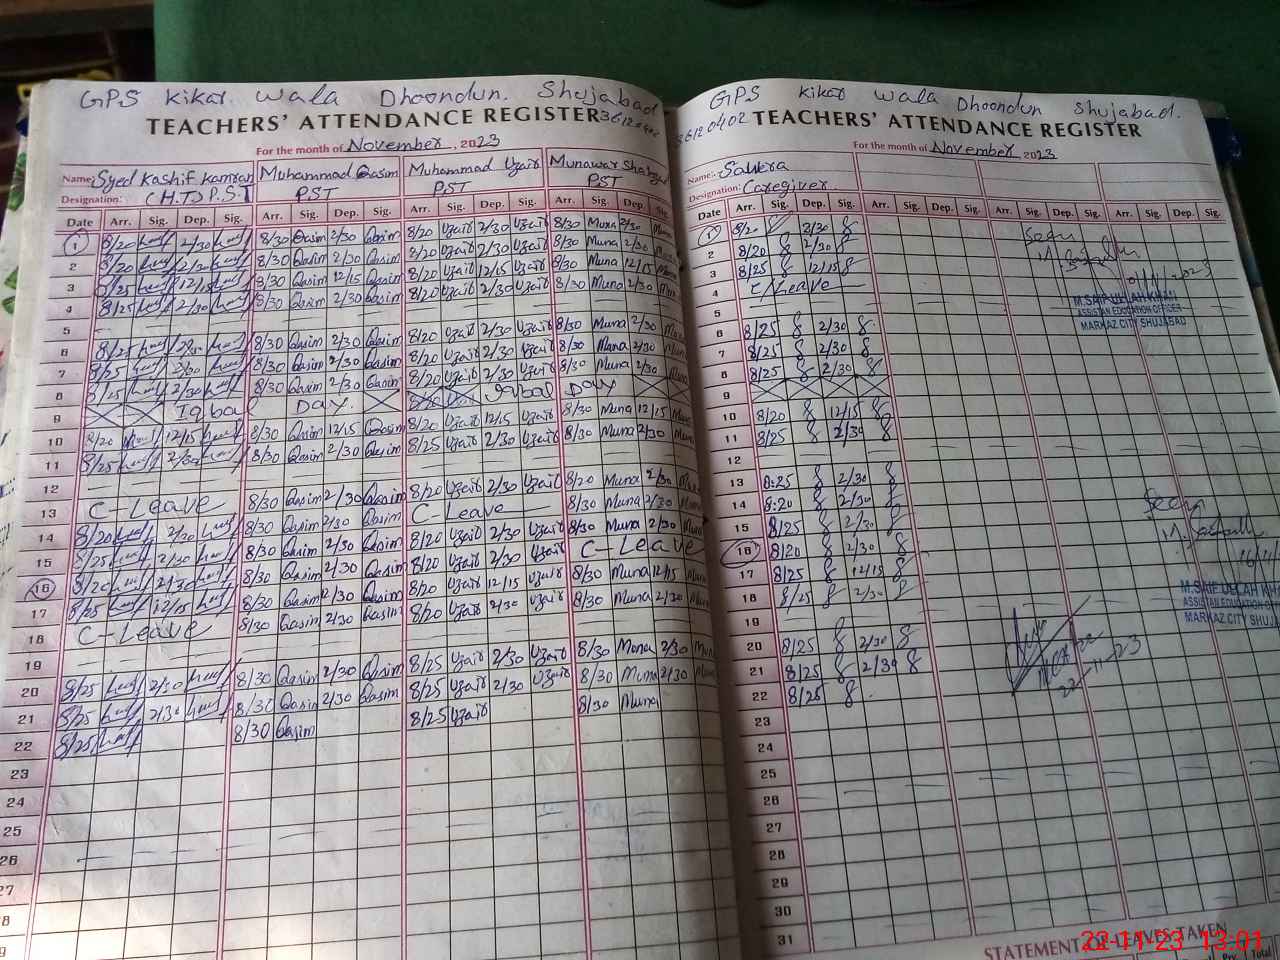 GPS Kikar Wala Dhoondun. Shujabad
TEACHERS' ATTENDANCE REGISTER
For the month of November, 2023
Name: Syed Kashif Kamran Muhammad Qasim Muhammad Uzair Munawar
Designation: (H.T) P.S.T PST PST PST
Date Arr. Sig. Dep. Sig. Arr. Sig. Dep. Sig. Arr. Sig. Dep. Sig. Arr. Sig. Dep. Sig.
1 8/20 2/30 8/30 Qasim 2/30 Qasim 8/20 Uzair 2/30 Uzair 8/30 Muna 2/30 Muna
2 8/20 2/30 8/30 Qasim 2/30 Qasim 8/20 Uzair 2/30 Uzair 8/30 Muna 2/30 Muna
3 8/25 12/15 8/30 Qasim 12/15 Qasim 8/20 Uzair 12/15 Uzair 8/30 Muna 12/15 Muna
4 8/25 2/30 8/30 Qasim 2/30 Qasim 8/20 Uzair 2/30 Uzair 8/30 Muna 2/30 Muna
5
6 8/25 2/30 8/30 Qasim 2/30 Qasim 8/20 Uzair 2/30 Uzair 8/30 Muna 2/30 Muna
7 8/25 2/30 8/30 Qasim 2/30 Qasim 8/20 Uzair 2/30 Uzair 8/30 Muna 2/30 Muna
8 8/25 2/30 8/30 Qasim 2/30 Qasim 8/20 Uzair 2/30 Uzair 8/30 Muna 2/30 Muna
9 Iqbal DAY. Iqbal DAY
10 8/20 12/15 8/30 Qasim 12/15 Qasim 8/20 Uzair 12/15 Uzair 8/30 Muna 12/15 Muna
11 8/25 2/30 8/30 Qasim 2/30 Qasim 8/25 Uzair 2/30 Uzair 8/30 Muna 2/30 Muna
12
13 C-Leave 8/30 Qasim 2/30 Qasim 8/20 Uzair 2/30 Uzair 8/20 Muna 2/30 Muna
14 8/20 2/20 8/30 Qasim 2/30 Qasim C-Leave 8/30 Muna 2/30 Muna
15 8/25 2/30 8/30 Qasim 2/30 Qasim 8/20 Uzair 2/30 Uzair 8/30 Muna 2/30 Muna
16 8/20 2/30 8/30 Qasim 2/30 Qasim 8/20 Uzair 2/30 Uzair C-Leave
17 8/25 12/15 8/30 Qasim 12/30 Qasim 8/20 Uzair 12/15 Uzair 8/30 Muna 12/15 Muna
18 C-Leave 8/30 Qasim 2/30 Qasim 8/20 Uzair 2/30 Uzair 8/30 Muna 2/30 Muna
19
20 8/25 2/30 8/30 Qasim 2/30 Qasim 8/25 Uzair 2/30 Uzair 8/30 Muna 2/30 Muna
21 8/25 2/30 8/30 Qasim 2/30 Qasim 8/25 Uzair 2/30 Uzair 8/30 Muna 2/30 Muna
22 8/25 8/30 Qasim 8/25 Uzair 8/30 Muna
23
24
25
26
27
GPS Kikar Wala Dhoondun Shujabad.
36120402 TEACHERS' ATTENDANCE REGISTER
For the month of November, 2023
Name: Sawera
Designation: Caregiver
Date Arr. Sig. Dep. Sig. Arr. Sig. Dep. Sig. Arr. Sig. Dep. Sig. Arr. Sig. Dep. Sig.
1 8/20 2/30 Seen
2 8/20 2/30
3 8/25 12/15
4 C/Leave
M.SAIF ULLAH KHAN
ASSISTAN EDUCATION OFFICER
MARKAZ CITY SHUJABAD
5
6 8/25 2/30
7 8/25 2/30
8 8/25 2/30
9
10 8/20 12/15
11 8/25 2/30
12
13 8:25 2/30
14 8:20 2/30 Seen
15 8/25 2/30
16 8/20 2/30
17 8/25 12/15
18 8/25 2/30
M.SAIF ULLAH KHA
ASSISTAN EDUCATION
MARKAZ CITY SHUJA
19
20 8/25 2/30
21 8/25 2/30
22 8/25
22-11-23
23
24
25
26
27
28
29
30
31
STATEMENT OF LEAVES TAKEN
22-11-23 13:01